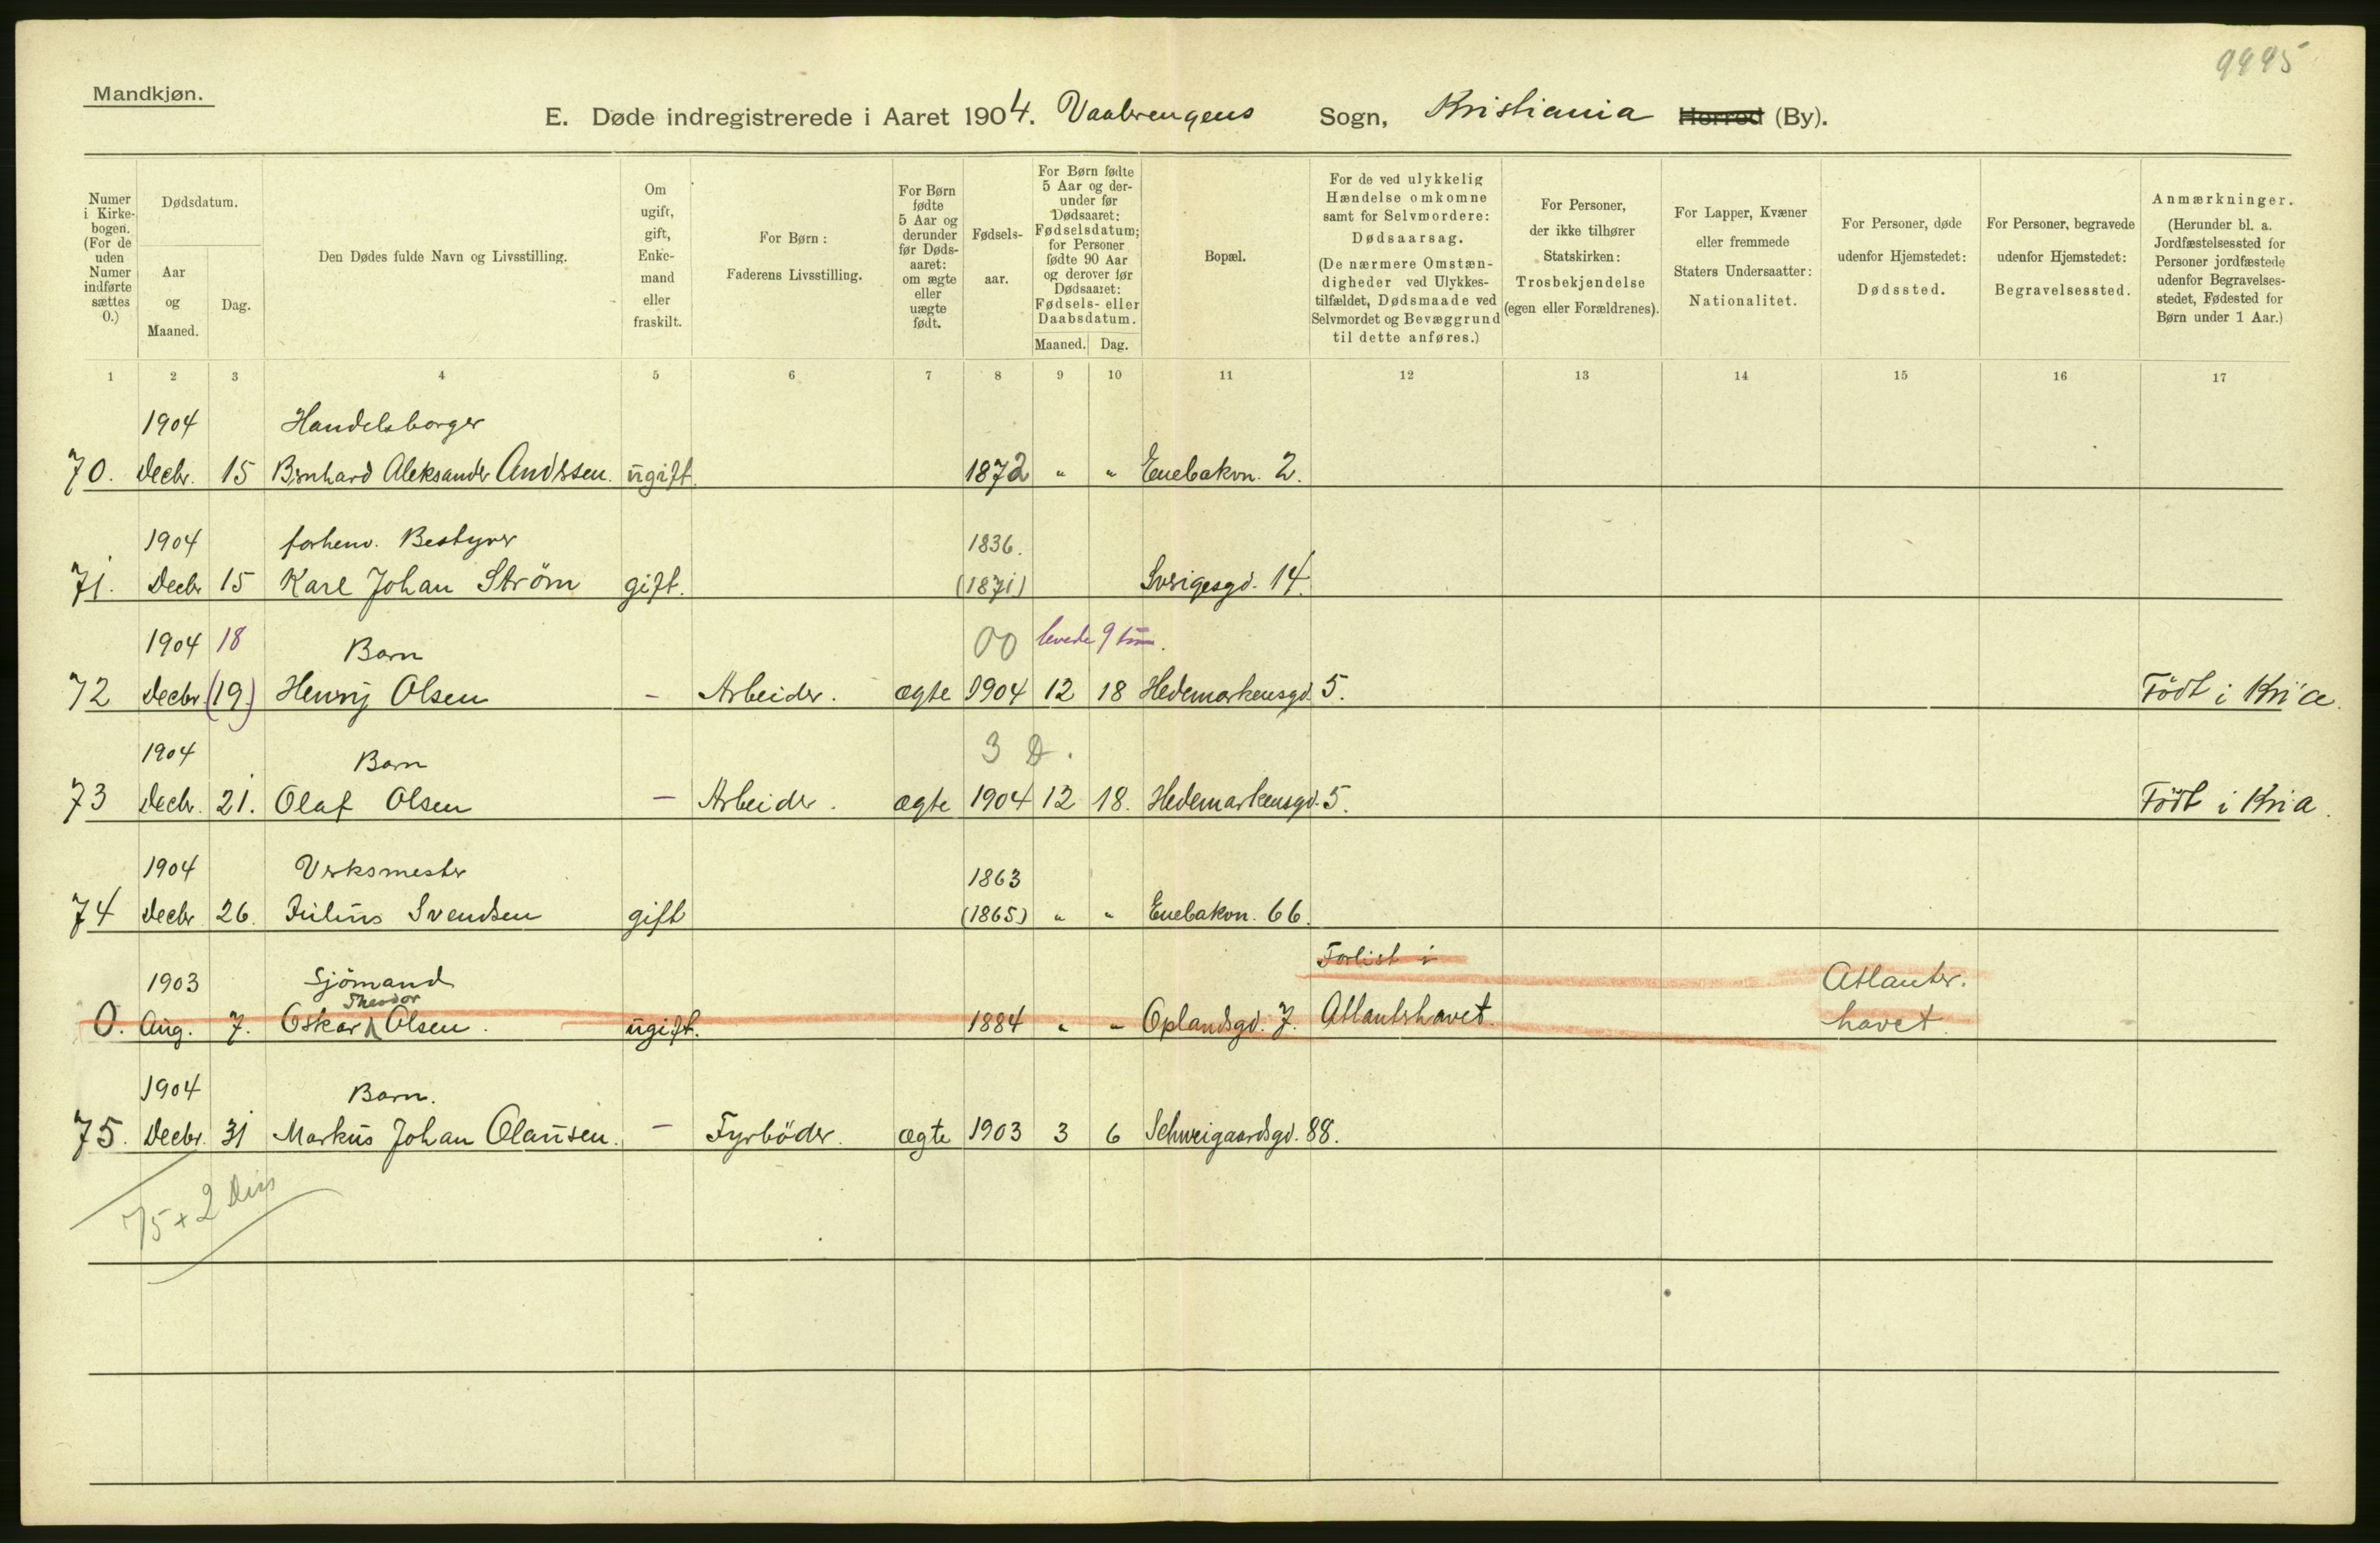 9995
Mandkjøn.
E. Døde indregistrerede i Aaret 1904. Vaalerengens Sogn, Kristiania Herred (By).
Numer i Kirkebogen. (For de uden Numer indførte sættes 0.)
Dødsdatum.
Aar og Maaned.
Dag.
Den Dødes fulde Navn og Livsstilling.
Om ugift, gift, Enkemand eller fraskilt.
For Børn: Faderens Livsstilling.
For Børn fødte 5 Aar og derunder før Dødsaaret: om ægte eller uægte født.
Fødselsaar.
For Børn fødte 5 Aar og derunder før Dødsaaret: Fødselsdatum; for Personer fødte 90 Aar og derover før Dødsaaret: Fødsels- eller Daabsdatum.
Maaned. Dag.
Bopæl.
For de ved ulykkelig Hændelse omkomne samt for Selvmordere: Dødsaarsag. (De nærmere Omstændigheder ved Ulykkestilfældet, Dødsmaade ved Selvmordet og Bevæggrund til dette anføres.)
For Personer, der ikke tilhører Statskirken: Trosbekjendelse (egen eller Forældrenes).
For Lapper, Kvæner eller fremmede Staters Undersaatter: Nationalitet.
For Personer, døde udenfor Hjemstedet: Dødssted.
For Personer, begravede udenfor Hjemstedet: Begravelsessted.
Anmærkninger. (Herunder bl. a. Jordfæstelsessted for Personer jordfæstede udenfor Begravelsesstedet, Fødested for Børn under 1 Aar.)
1 2 3 4 5 6 7 8 9 10 11 12 13 14 15 16 17
1904 Handelsborger
70. Decbr. 15 Bernhard Aleksander Anderssen. ugift. 1872 " " Enebakvn. 2.
1904 forhenv. Bestyrer 1836.
71. Decbr 15 Karl Johan Ström gift. (1871) Sverigesgd. 14.
1904 18 Barn 00 levede 9 tim.
72 Decbr (19.) Henrij Olsen - Arbeider. ægte 1904 12 18 Hedemarkensgd. 5. Födt i Kria.
1904 Barn 3 D.
73 Decbr. 21. Olaf Olsen - Arbeider. ægte 1904 12 18. Hedemarkensgd. 5. Födt i Kria.
1904 Verksmester 1863
74 Decbr 26. Julius Svendsen gift (1865) " " Enebakvn. 66.
1903 Sjömand Forlist i Atlanter.
Theodor
0. Aug. 7. Oskar Olsen. ugift. 1884 " " Oplandsgd. 7. Atlanterhavet. havet.
1904 Barn.
75. Decbr. 31 Markus Johan Olausen. - Fyrböder. ægte 1903 3 6 Schweigaardsgd. 88.
75 + 2